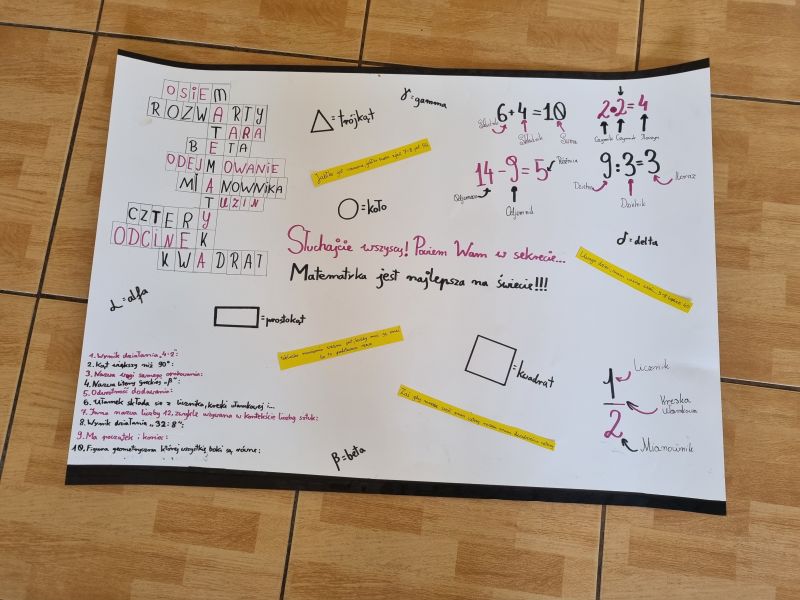 OSIEM
ROZWARTY
TARA
BETA
ODEJMOWANIE
MIANOWNIKA
TUZIN
CZTERY
ODCINEK
KWADRAT
γ = gamma
= trójkąt
= koło
6 + 4 = 10
Składnik
Składnik
Suma
2 • 2 = 4
Czynnik Czynnik Iloczyn
14 - 9 = 5
Różnica
Odjemna
Odjemnik
9 : 3 = 3
Dzielna
Dzielnik
Iloraz
Słuchajcie wszyscy! Powiem Wam w sekrecie...
Matematyka jest najlepsza na świecie!!!
δ = delta
α = alfa
= prostokąt
= kwadrat
1. Wynik działania „4·2”:
2. Kąt większy niż 90°:
3. Nazwa wagi samego opakowania:
4. Nazwa litery greckiej „β”:
5. Odwrotność dodawania:
6. Ułamek składa się z licznika, kreski ułamkowej i...
7. Inna nazwa liczby 12, zwykle używana w kontekście liczby sztuk:
8. Wynik działania „32:8”:
9. Ma początek i koniec:
10. Figura geometryczna której wszystkie boki są równe:
β = beta
1
2
Licznik
Kreska
ułamkowa
Mianownik